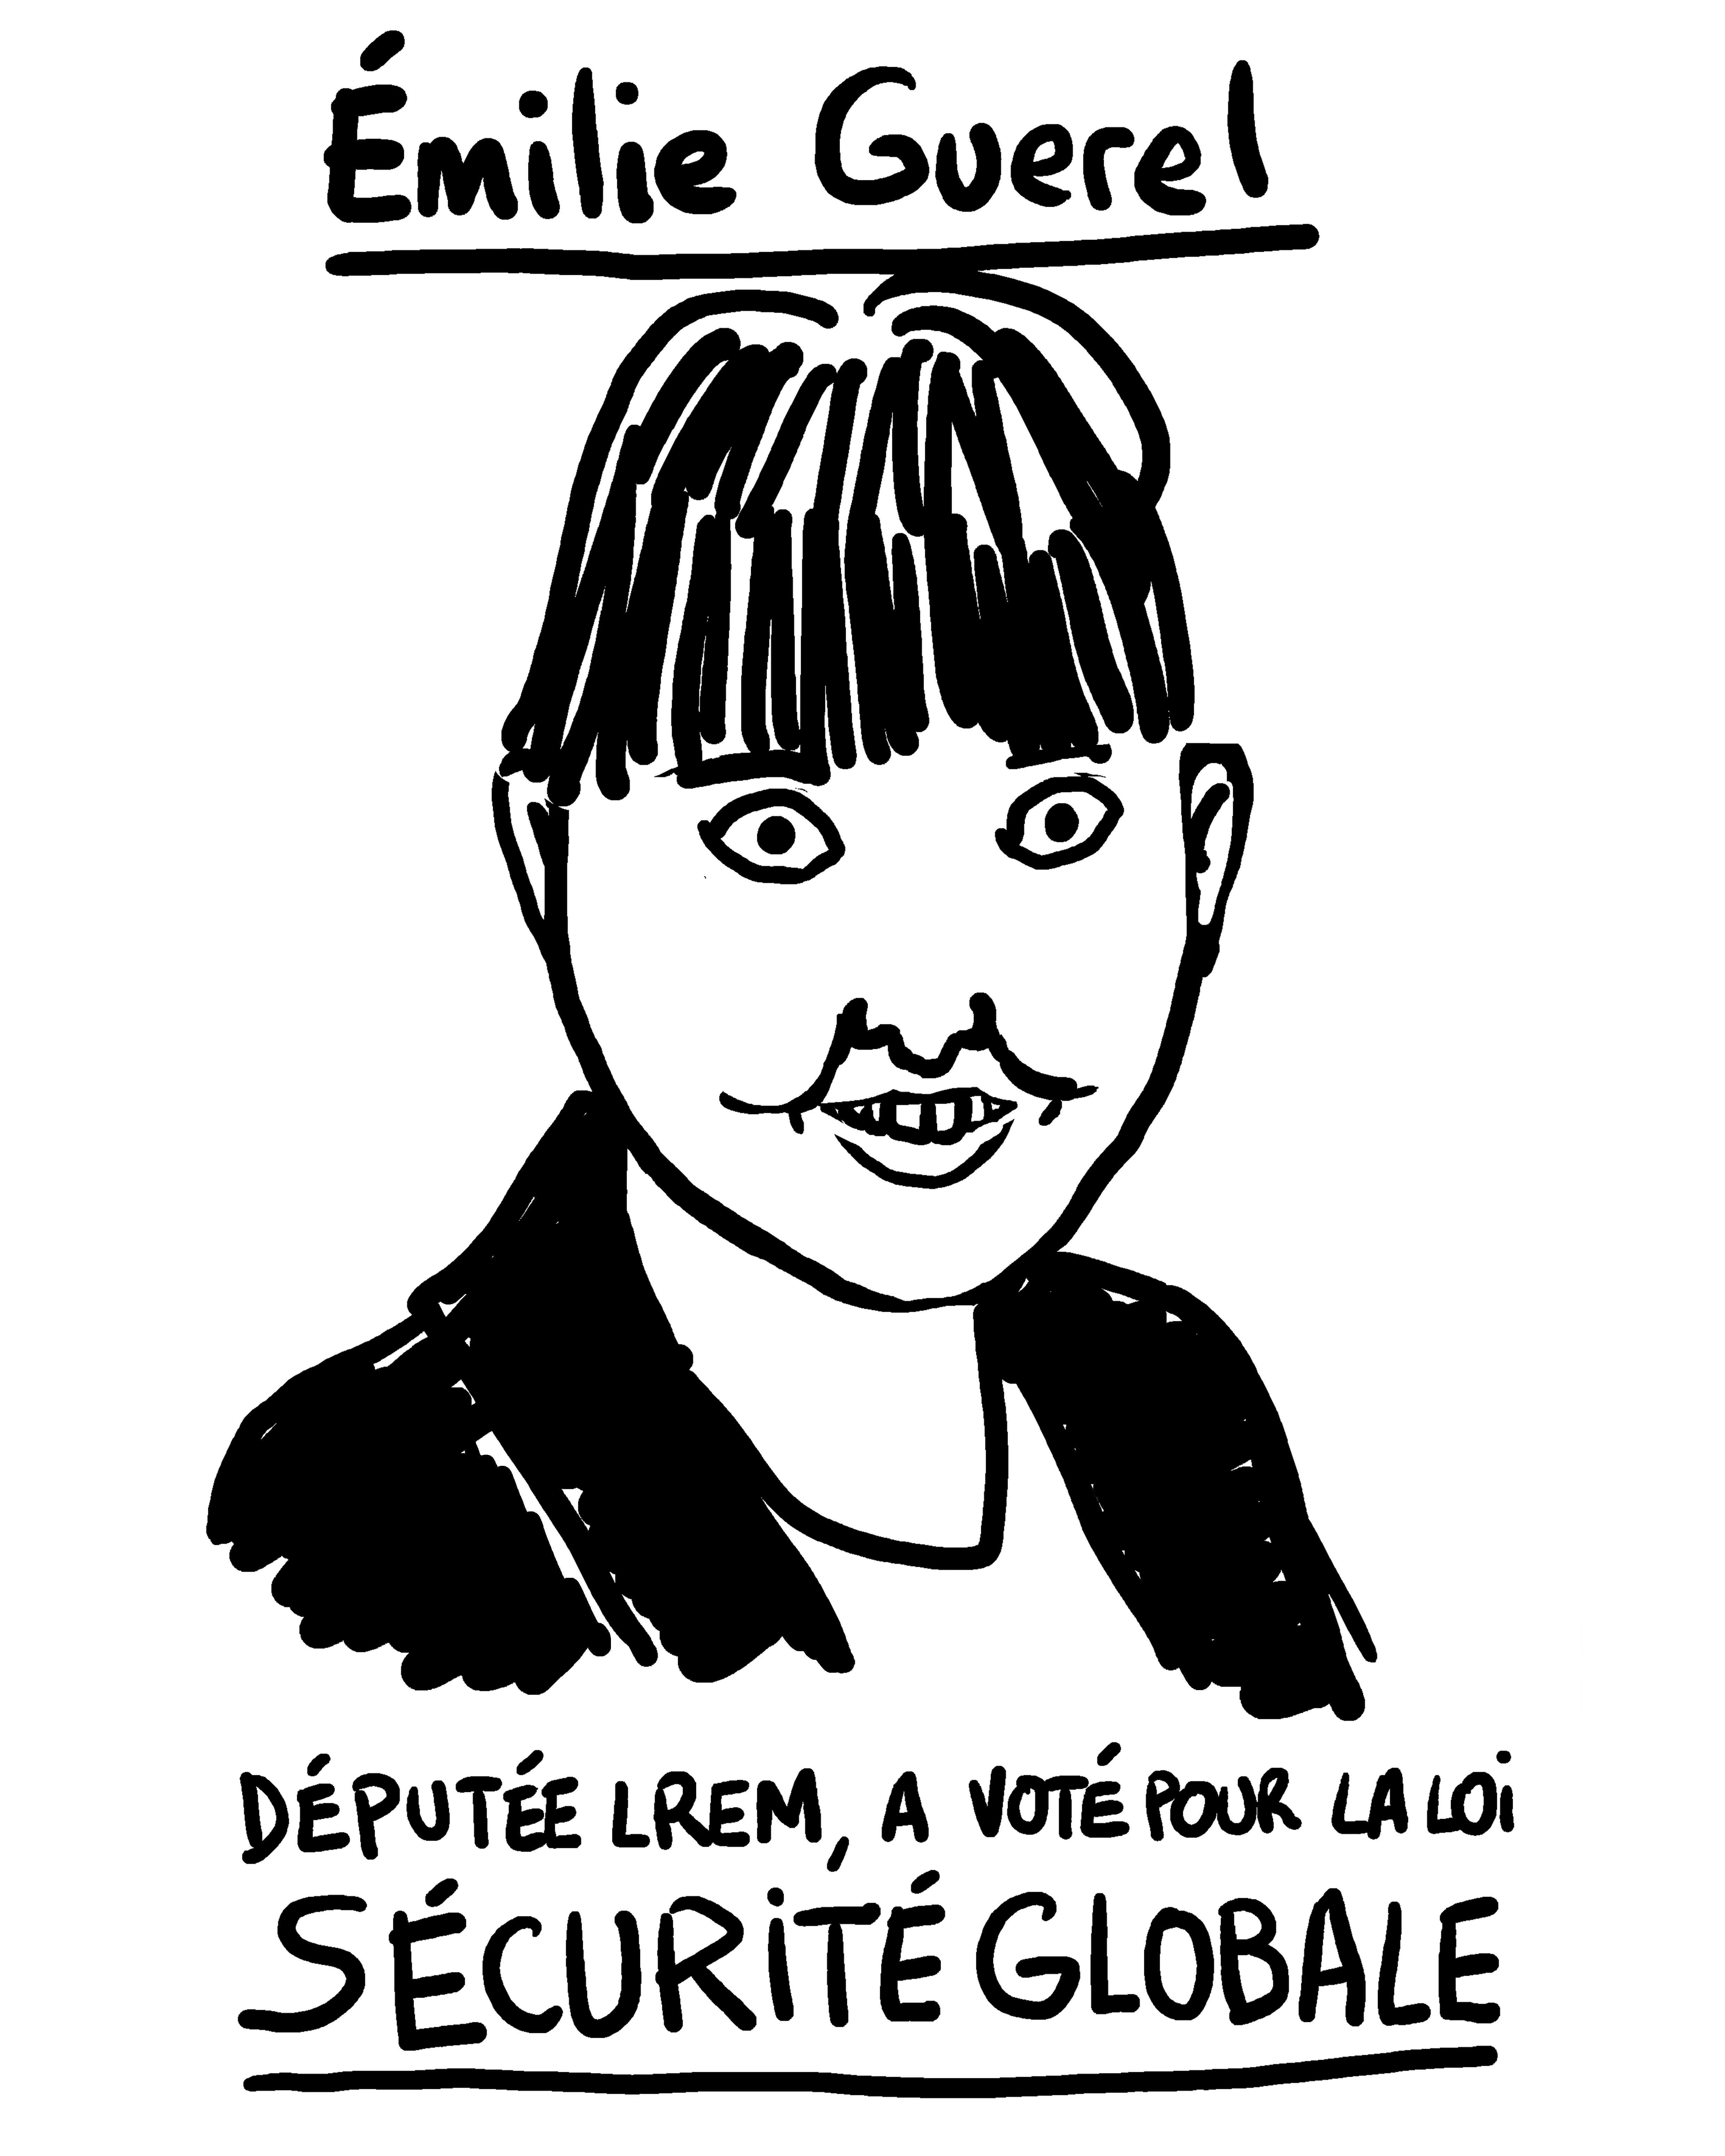 Émilie Guerel
DÉPUTÉE LREM, A VOTÉ POUR LA LOi
SÉCURiTÉ GLOBALE